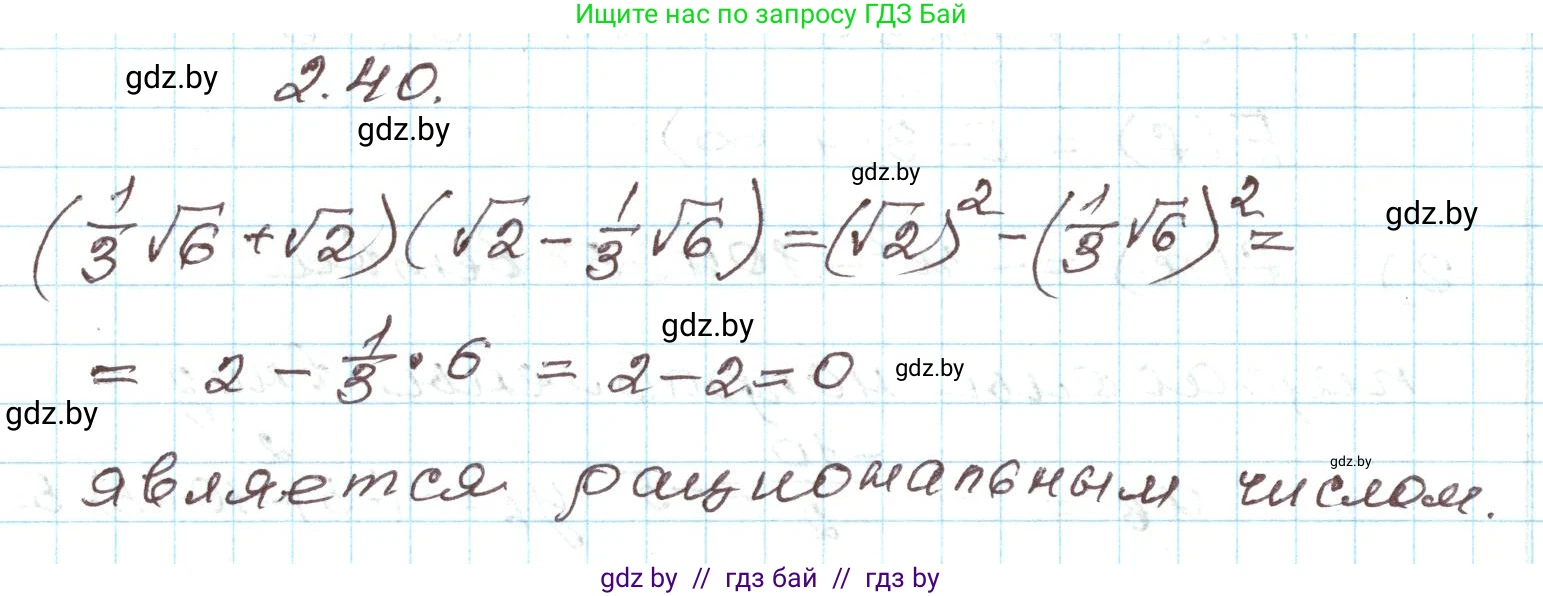 Ищите нас по запросу ГДЗ Бай
gdz.by 2.40.
gdz.by
gdz.by
(1/3 √6 + √2)(√2 − 1/3 √6) = (√2)² − (1/3 √6)² = gdz.by
gdz.by
= 2 − 1/3 · 6 = 2 − 2 = 0 gdz.by
gdz.by
gdz.by
является рациональным числом.
gdz by // гдз бай // гдз by